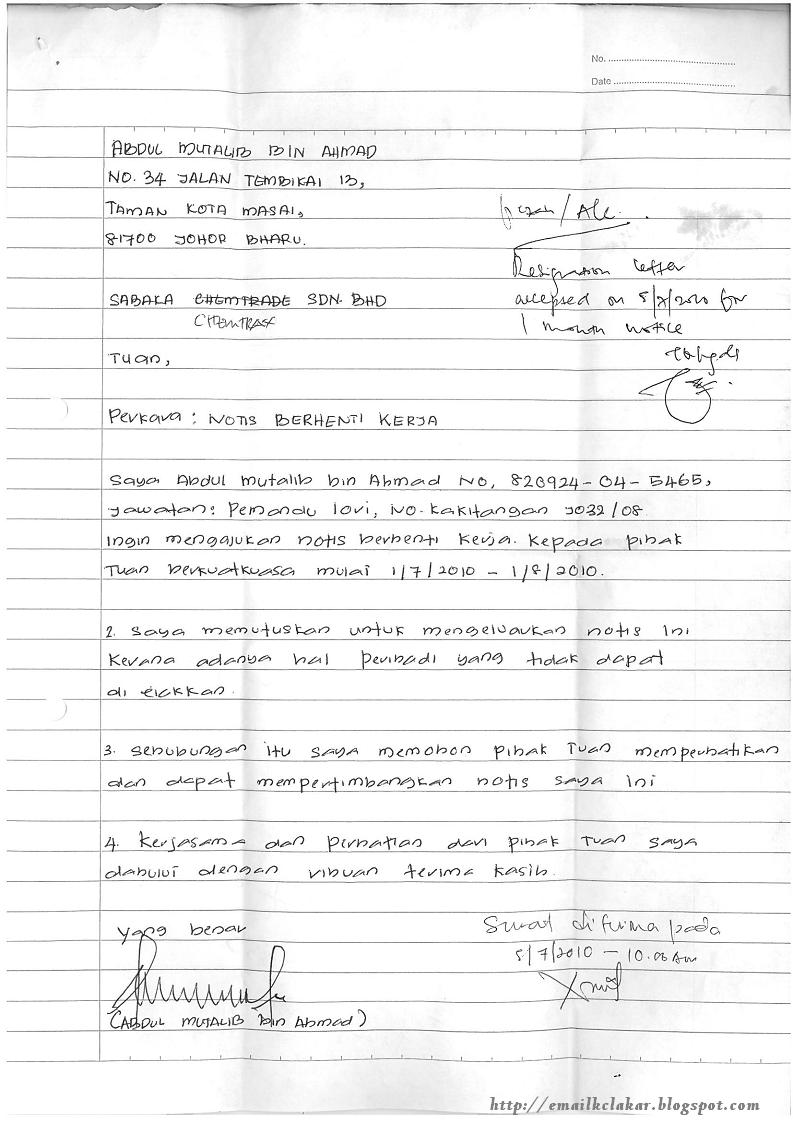 No. ........................
Date ........................
ABDUL MUTALIB BIN AHMAD
NO. 34 JALAN TEMBIKAI 13,
TAMAN KOTA MASAI,
81700 JOHOR BHARU.
/ Alc.
Resignation letter
accepted on 5/7/2010 for
1 month notice
SABAKA CHEMTRADE SDN. BHD
CHEMTRAX
Tuan,
Perkara : NOTIS BERHENTI KERJA
Saya Abdul mutalib bin Ahmad No, 820924-04-5465,
jawatan: Pemandu lori, No. Kakitangan J032/08
Ingin mengajukan notis berhenti kerja. Kepada pihak
Tuan berkuatkuasa mulai 1/7/2010 - 1/8/2010.
2. Saya memutuskan untuk mengeluarkan notis ini
kerana adanya hal peribadi yang tidak dapat
di elakkan.
3. Sehubungan itu saya memohon pihak Tuan memperhatikan
dan dapat mempertimbangkan notis saya ini
4. Kerjasama dan perhatian dari pihak Tuan saya
dahului dengan ribuan terima kasih.
yang benar
(ABDUL MUTALIB bin Ahmad)
Surat diterima pada
5/7/2010 - 10.00 Am
http://emailkclakar.blogspot.com